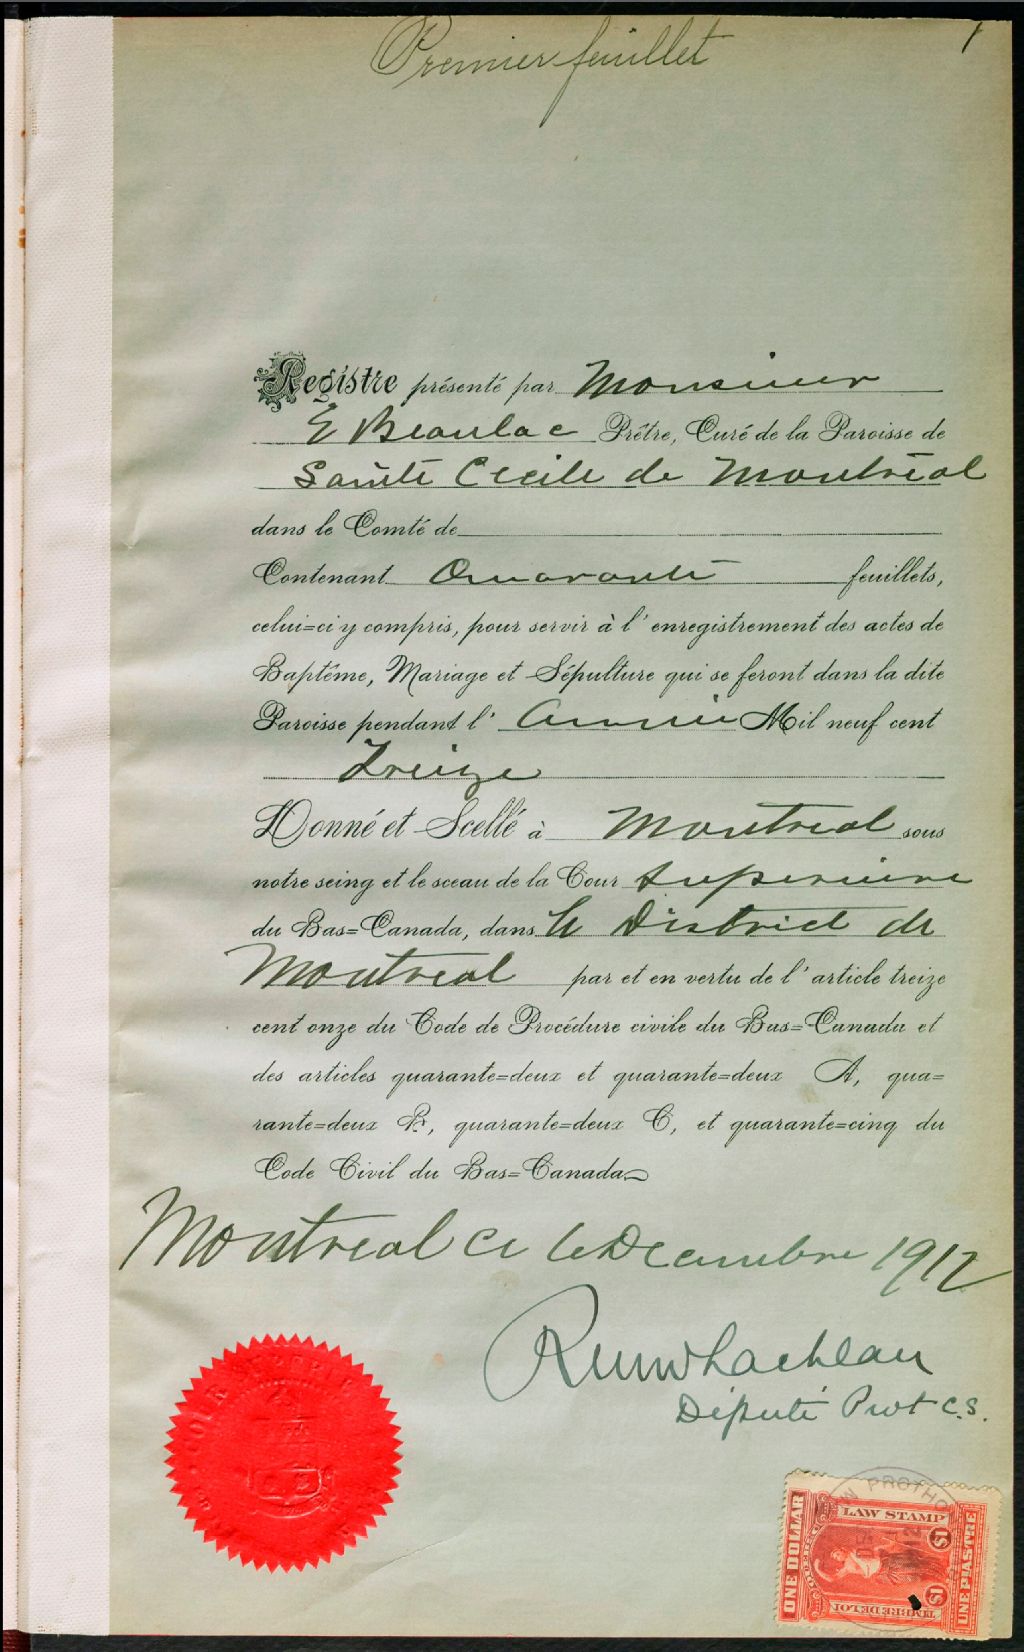 Premier feuillet
1
Registre présenté par Monsieur
E Beaulac Prêtre, Curé de la Paroisse de
Sainte Cecile de Montréal
dans le Comté de
Contenant Quarante feuillets,
celui=ci y compris, pour servir à l'enregistrement des actes de
Baptême, Mariage et Sépulture qui se feront dans la dite
Paroisse pendant l'année Mil neuf cent
Treize
Donné et Scellé à Montreal sous
notre seing et le sceau de la Cour Superieure
du Bas=Canada, dans le District de
Montreal par et en vertu de l'article treize
cent onze du Code de Procédure civile du Bas=Canada et
des articles quarante=deux et quarante=deux A, qua=
rante=deux B, quarante=deux C, et quarante=cinq du
Code Civil du Bas=Canada
Montreal ce 6 Decembre 1912
Député Prot C.S.
PROTHO
LAW STAMP
ONE DOLLAR
$1
UNE PIASTRE
$1
TIMBRE DE LOI